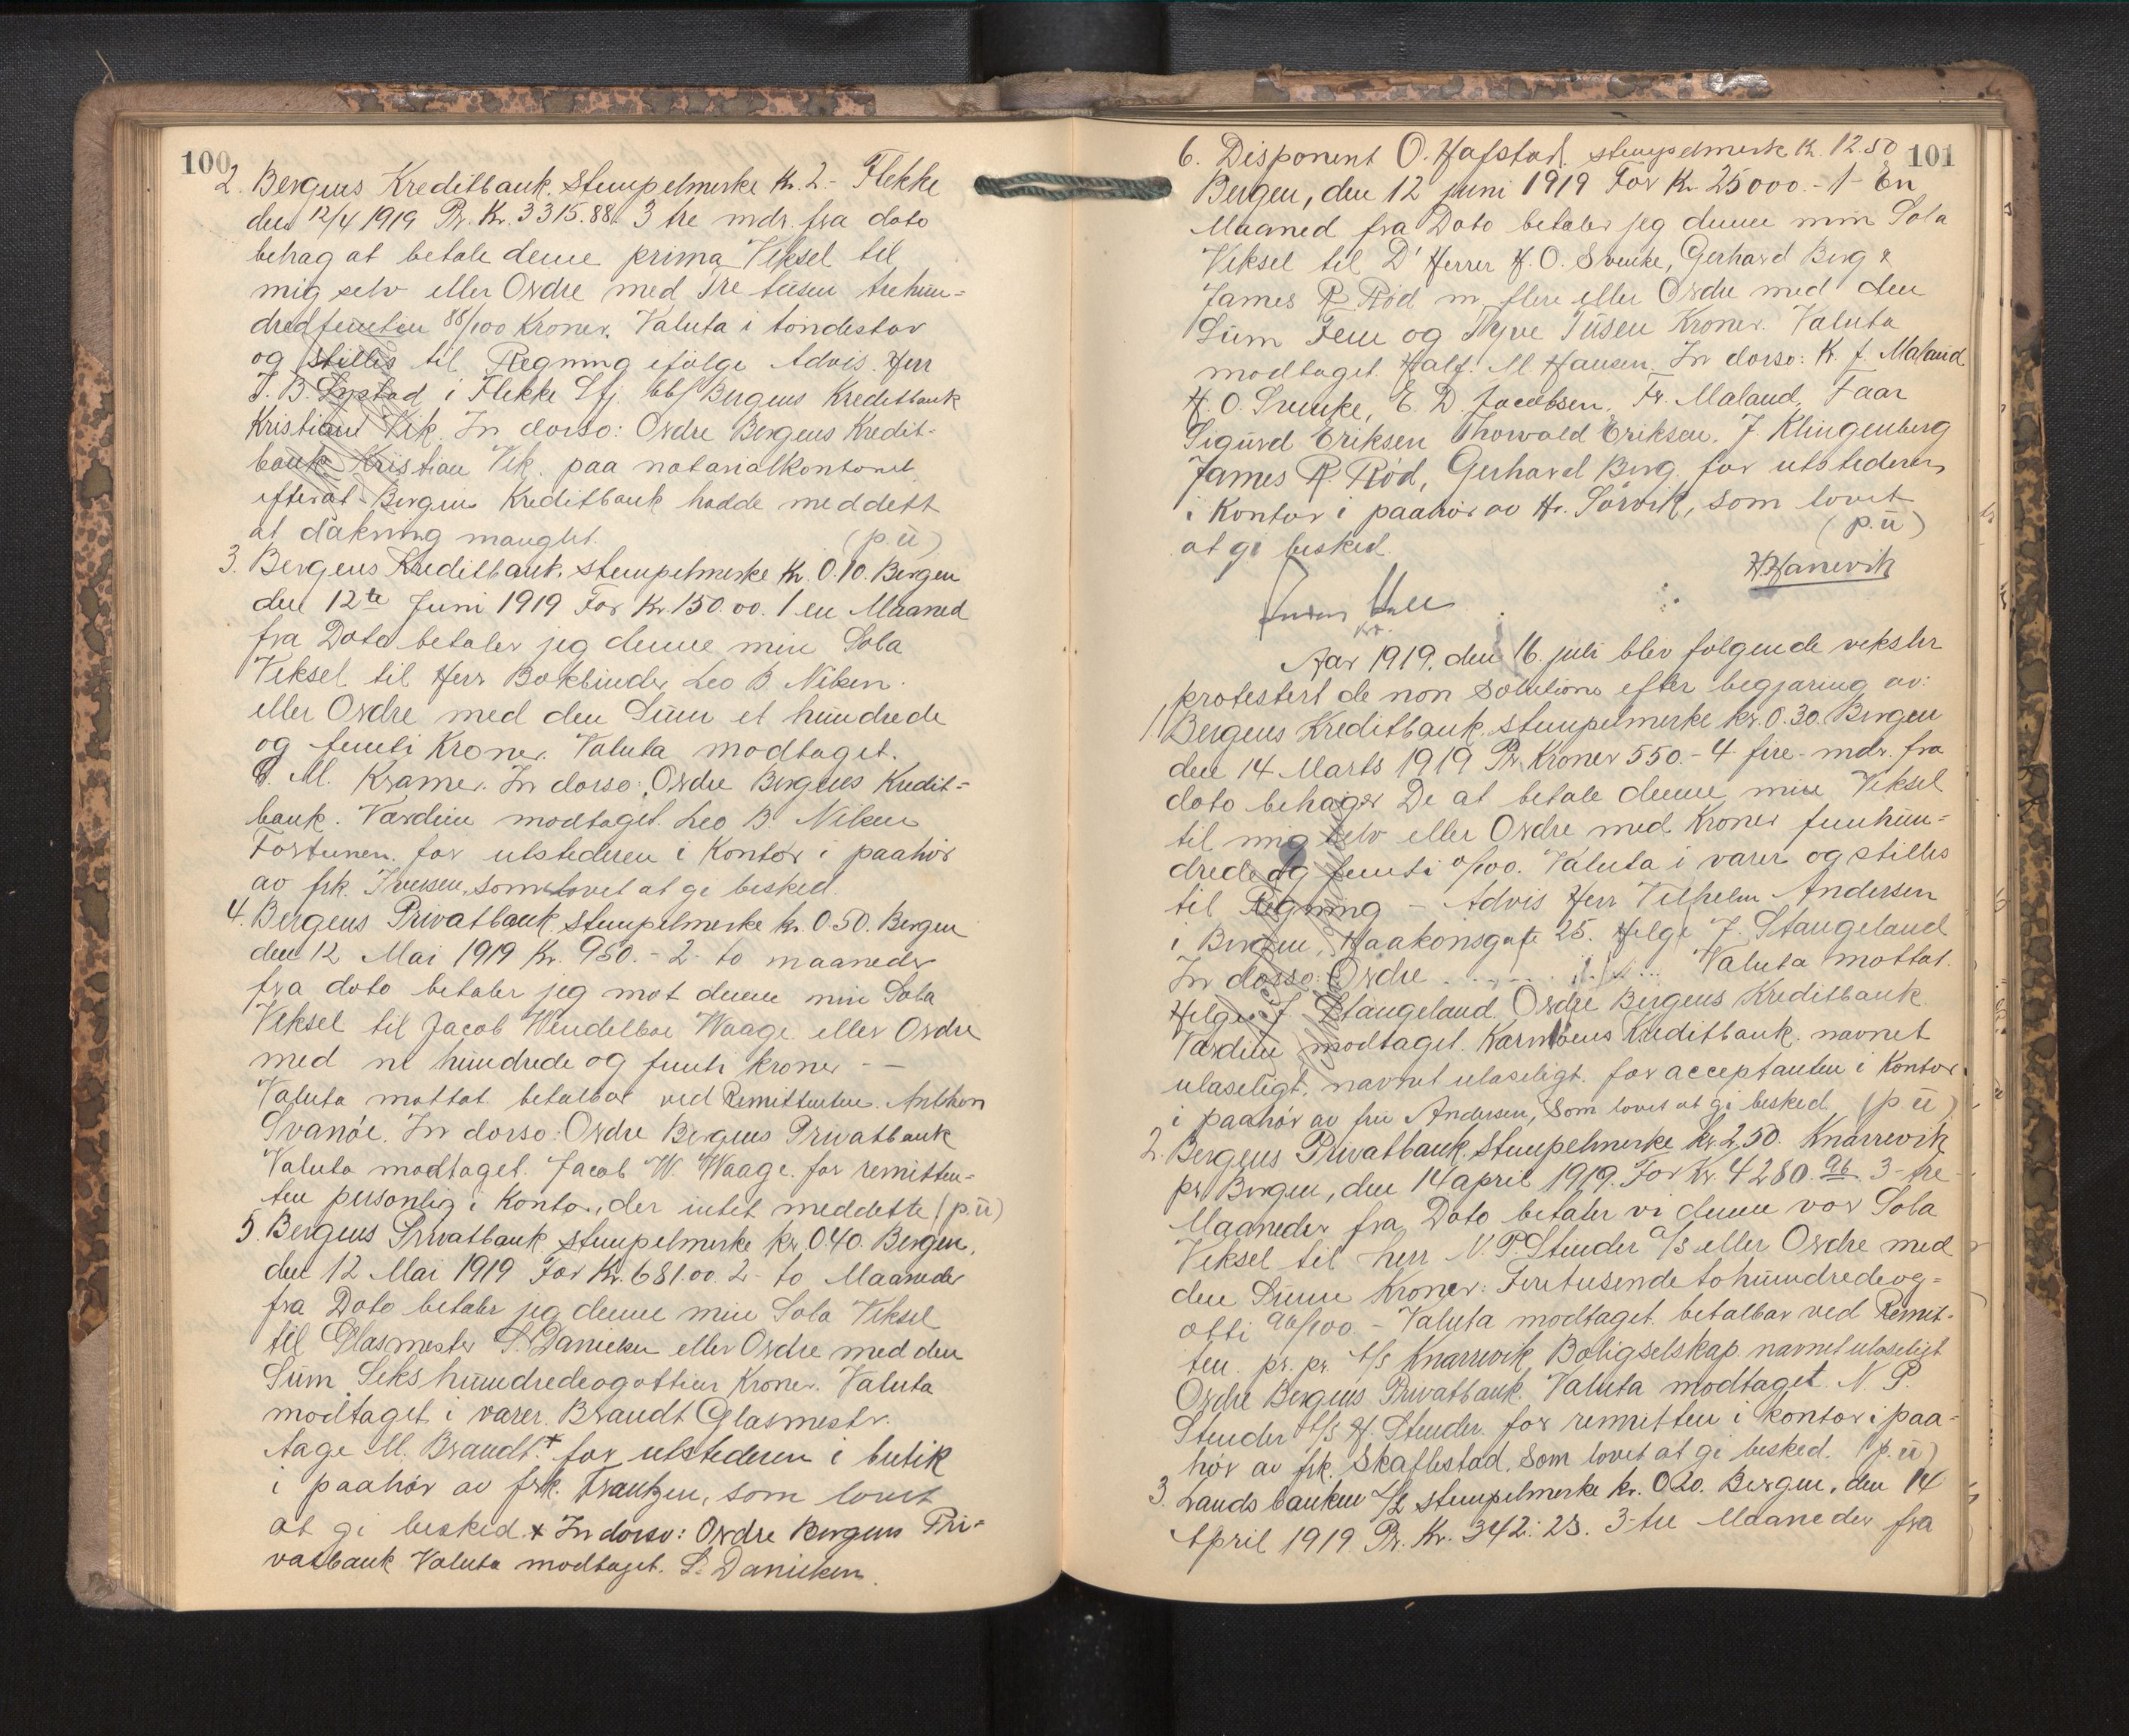 100
2. Bergens Kreditbank. Stempelmerke Kr. 2.- Flekke
den 12/4 1919 Pr. Kr. 3315.88. 3 tre mdr. fra dato
behag at betale denne prima Veksel til
mig selv eller Ordre med Tre tusen trehun-
dredfemten 88/100 Kroner. Valuta i töndestav
og stilles til Regning ifölge Advis. Herr
i Flekke Sfj. bb/ Bergens Kreditbank
Kristian Vik. In dorso: Ordre Bergens Kredit-
bank Kristian Vik. paa notarialkontoret
efterat Bergens Kreditbank hadde meddelt
at dækning manglet. (p.ü)
3. Bergens Kreditbank. Stempelmerke Kr. 0.10. Bergen
den 12te Juni 1919 For Kr. 150.00. 1 en Maaned
fra Dato betaler jeg denne min Sola
Veksel til Herr Bokbinder Leo B. Nilsen.
eller Ordre med den Sum et hundrede
og femti Kroner. Valuta modtaget.
M. Kramer. In dorso: Ordre Bergens Kredit-
bank. Værdien modtaget. Leo B. Nilsen
Fortunen. for utstederen i Kontor i paahör
av frk. Iversen, som lovet at gi besked.
4. Bergens Privatbank. Stempelmerke kr. 0.50. Bergen
den 12 Mai 1919 Kr. 950.- 2- to maaneder
fra dato betaler jeg mot denne min Sola
Veksel til Jacob Wendelboe Waage eller Ordre
med ni hundrede og femti kroner - -
Valuta mottat betalbar ved Remittenten. Anthon
Svanöe. In dorso: Ordre Bergens Privatbank
Valuta modtaget. Jacob W. Waage. for remitten-
ten personlig i Kontor, der intet meddelte (p.ü)
5. Bergens Privatbank. Stempelmerke kr. 0.40. Bergen,
den 12 Mai 1919 For Kr. 681.00. 2- to Maaneder
fra Dato betaler jeg denne min Sola Veksel
til Glasmester S. Danielsen eller Ordre med den
Sum Sekshundredeogottien Kroner. Valuta
modtaget i varer. Brandt Glasmestr.
Aage M. Brandt.* for utstederen i butik
i paahör av frk. Frantzen, som lovet
at gi besked. * In dorso: Ordre Bergens Pri-
vatbank Valuta modtaget. S. Danielsen.
101
6. Disponent O. Hafstad. stempelmerke Kr. 12.50
Bergen, den 12 juni 1919 For Kr 25000.- 1- En
Maaned fra Dato betaler jeg denne min Sola
Veksel til D' Herrer H.O. Svenke, Gerhard Berg &
James R. Röd m. flere eller Ordre med den
Sum Fem og Tyve Tusen Kroner. Valuta
modtaget Half. M Hansen. In dorso: K. J. Maland
H.O. Svenke, E. D. Jacobsen. Fr. Maland, Faar
Sigurd Eriksen Thorvald Eriksen. J. Klingenberg
James R. Röd, Gerhard Berg. for utstederen
i Kontor i paahör av Hr. Sörvik, som lovet
at gi besked. (p.ü)
H Hanevik
Aar 1919, den 16. juli blev fölgende veksler
protestert de non solutione efter begjæring av:
1. Bergens Kreditbank. stempelmerke kr. 0.30. Bergen
den 14 Marts 1919 Pr. Kroner 550.- 4 fire- mdr. fra
dato behager De at betale denne min Veksel
til mig selv eller Ordre med Kroner femhun-
drede og femti 0/100. Valuta i varer og stilles
til Regning - Advis Herr Vilhelm Andersen
i Bergen, Haakonsgate 25. Helge J. Stangeland
In dorso: Ordre ........ Valuta mottat.
Helge J. Stangeland. Ordre Bergens Kreditbank.
Værdien modtaget. Karmöens Kreditbank. navnet
ulæseligt. navnet ulæseligt. for acceptanten i Kontor
i paahör av fru Andersen, som lovet at gi besked. (p ü)
2. Bergens Privatbank. stempelmerke kr. 2.50. Knarrevik
pr. Bergen, den 14 april 1919. For Kr. 4280.96 3- tre-
Maaneder fra Dato betaler vi denne vor Sola
Veksel til herr N.P. Stender A/S eller Ordre med
den Sum Kroner: Firetusendetohundredeog-
otti 96/100 - Valuta modtaget. betalbar ved Remit-
ten. pr. pr. A/S Knarrevik Boligselskap navnet ulæseligt
Ordre Bergens Privatbank. Valuta modtaget. N. P.
Stender A/S H. Stender. for remitten i kontor i paa-
hör av frk. Skaftestad. som lovet at gi besked. (p.ü)
3. Landsbanken A/S stempelmerke kr. 0.20. Bergen, den 14
April 1919. Pr. Kr. 342:28. 3- tre Maaneder fra